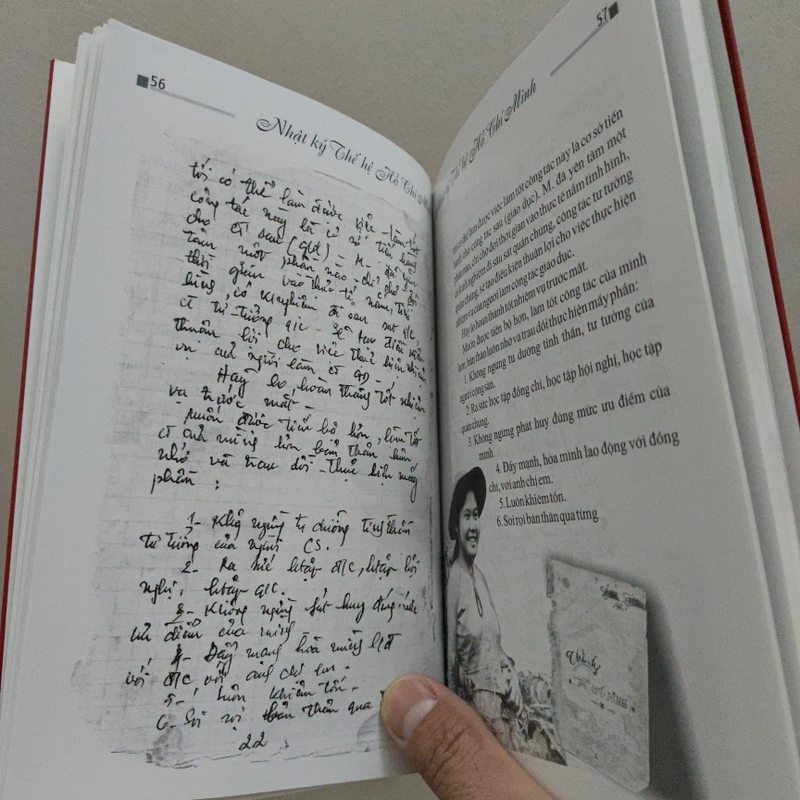 56
Nhật ký Thế hệ Hồ Chí M
tôi có thể làm được việc – làm tốt
công tác này là cơ sở tiến hành
cho ct sau (gd) – M. đã yên
tâm một phần nào – chỉ chờ đợi
thời gian vào thực tế nắm tình
hình, có kị nghiệm đi sâu sát q/c,
ct tư tưởng q/c – sẽ tạo điều kiện
thuận lợi cho việc thực hiện nhiệm
vụ của người làm ct GD –
Hãy lo hoàn thành tốt nhiệm
vụ trước mắt –
Muốn được tiến bộ hơn, làm tốt
ct của mình hơn bản thân luôn
nhớ và trau dồi – thực hiện mấy
phần :
1- Không ngừng tu dưỡng tinh thần
tư tưởng của người CS.
2- Ra sức h tập đ/c, h tập hội
nghị, h tập q/c.
3- Không ngừng phát huy đúng mức
ưu điểm của mình
4- Đẩy mạnh hòa mình lđ
với đ/c, với anh chị em.
5- Luôn khiêm tốn –
6- Soi rọi bản thân qua
22
57
ký Thế hệ Hồ Chí Minh
làm được việc làm tốt công tác này là cơ sở tiến
hành cho công tác sau (giáo dục). M. đã yên tâm một
phần nào, chỉ chờ đợi thời gian vào thực tế nắm tình hình,
có kinh nghiệm đi sâu sát quần chúng, công tác tư tưởng
quần chúng, sẽ tạo điều kiện thuận lợi cho việc thực hiện
nhiệm vụ của người làm công tác giáo dục.
Hãy lo hoàn thành tốt nhiệm vụ trước mắt.
Muốn được tiến bộ hơn, làm tốt công tác của mình
hơn, bản thân luôn nhớ và trau dồi thực hiện mấy phần:
1. Không ngừng tu dưỡng tinh thần, tư tưởng của
người cộng sản.
2. Ra sức học tập đồng chí, học tập hội nghị, học tập
quần chúng.
3. Không ngừng phát huy đúng mức ưu điểm của
mình.
4. Đẩy mạnh, hòa mình lao động với đồng
chí, với anh chị em.
5. Luôn khiêm tốn.
6. Soi rọi bản thân qua từng